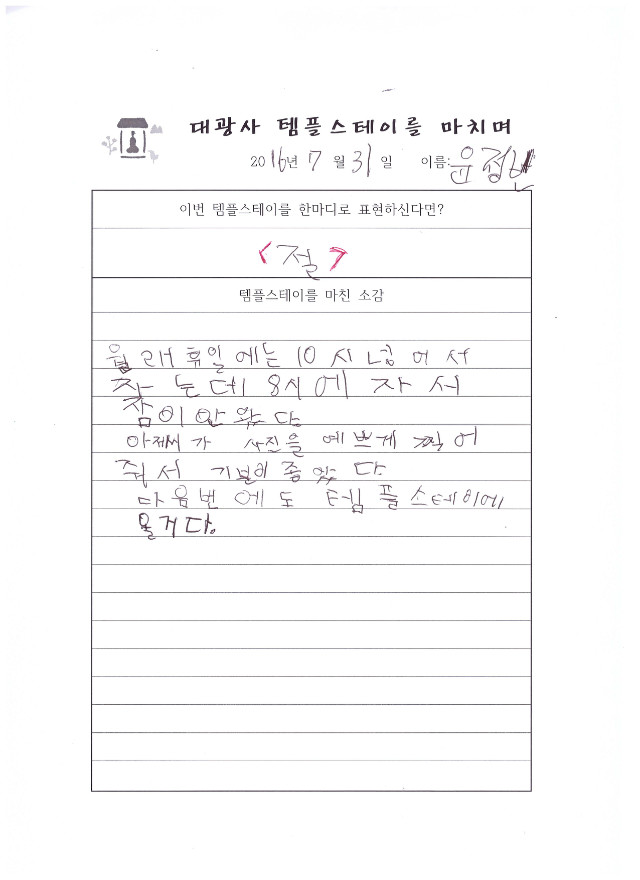 대광사 템플스테이를 마치며
2016년 7월 31일 이름: 윤정
이번 템플스테이를 한마디로 표현하신다면?
<절>
템플스테이를 마친 소감
웝래 휴일에는 10시 넘어서
자는데 8시에 자서
잠이 안 왔다.
아저씨가 사진을 예쁘게 찍어
줘서 기분이 좋았다
다음번에도 템플스테이에
올거다.